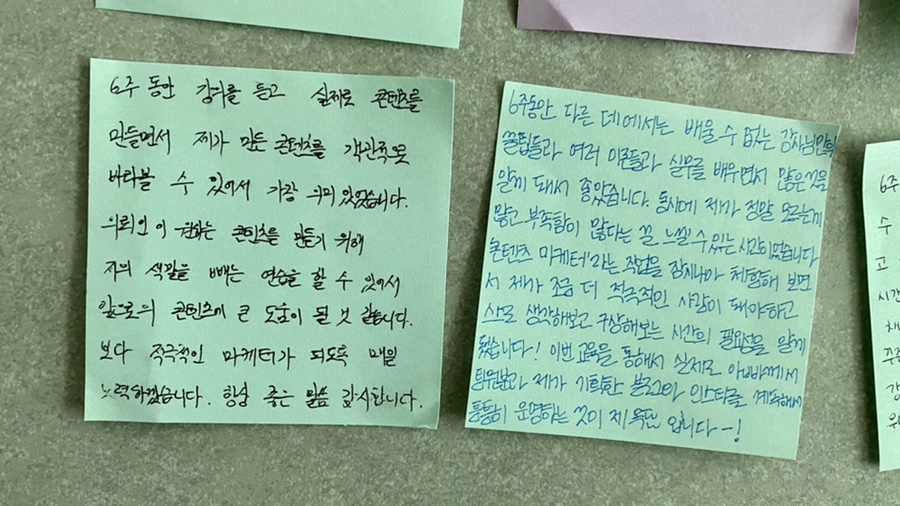 6주 동안 강의를 듣고 실제로 콘텐츠를
만들면서 제가 만든 콘텐츠를 객관적으로
바라볼 수 있어서 가장 의미 있었습니다.
의뢰인이 원하는 콘텐츠를 만들기 위해
저의 색깔을 빼는 연습을 할 수 있어서
앞으로의 콘텐츠에 큰 도움이 될 것 같습니다.
보다 적극적인 마케터가 되도록 매일
노력하겠습니다. 항상 좋은 말씀 감사합니다.
6주동안 다른 데에서는 배울 수 없는 강사님만의
꿀팁들과 여러 이론들과 실무를 배우면서 많은 것을
알게 돼서 좋았습니다. 동시에 제가 정말 모르는게
많고 부족함이 많다는 걸 느낄 수 있는 시간이었습니다
콘텐츠 마케터라는 직업을 잠시나마 체험해 보면
서 제가 조금 더 적극적인 사람이 돼야하고
스스로 생각해보고 구상해보는 시간의 필요성을 알게
됐습니다! 이번 교육을 통해서 실제로
팀원분과 제가 기획한 블로그와 인스타를 계속해서
틈틈이 운영하는 것이 제 목표 입니다~!
6주
수
고
시간